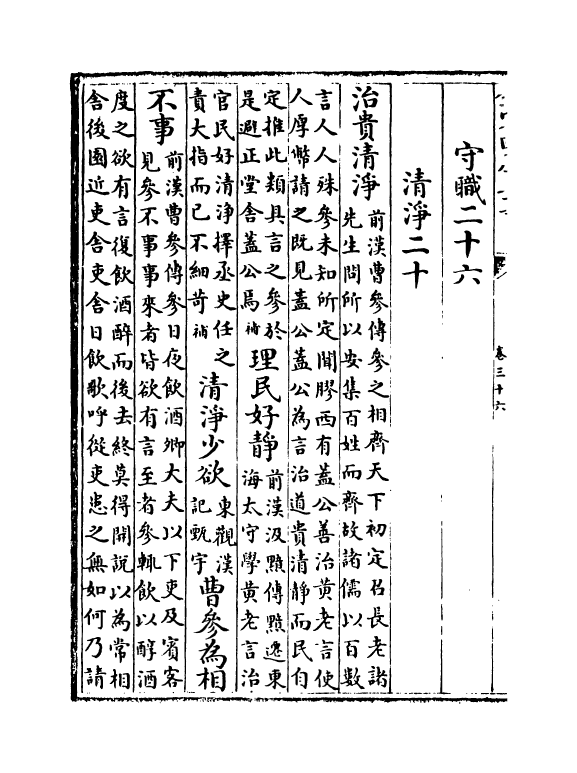 卷三十六
守職二十六
清淨二十
治貴清淨
前漢曹參傳參之相齊天下初定召長老諸
先生問所以安集百姓而齊故諸儒以百數
言人人殊參未知所定聞膠西有蓋公善治黃老言使
人厚幣請之既見蓋公蓋公為言治道貴清靜而民自
定推此類具言之參於
是避正堂舍蓋公焉補
理民好靜
前漢汲黯傳黯遷東
海太守學黃老言治
官民好清淨擇丞史任之
責大指而已不細苛補
清淨少欲
東觀漢
記甄宇
曹參為相
不事
前漢曹參傳參日夜飲酒卿大夫以下吏及賓客
見參不事事來者皆欲有言至者參輒飲以醇酒
度之欲有言復飲酒醉而後去終莫得開說以為常相
舍後園近吏舍吏舍日飲歌呼從吏患之無如何乃請